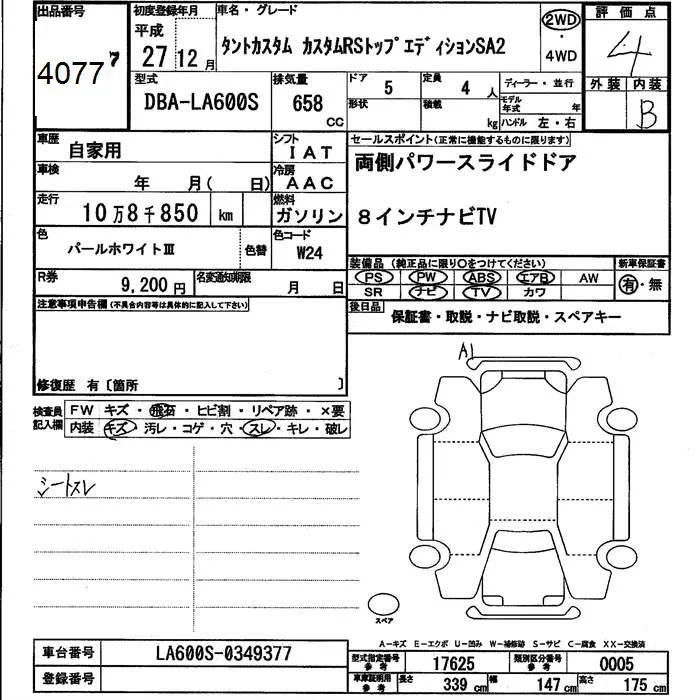 出品番号
4077 ｱ
初度登録年月
平成
27 12月
車名・グレード
タントカスタム カスタムRSトップエディションSA2
2WD
・
4WD
評価点
4
外装 内装
B
型式
DBA-LA600S
排気量
658
CC
ドア
5
形状
定員
4 人
積載
kg
ディーラー・並行
モデル年式 年
ハンドル 左・右
車歴
自家用
シフト
IAT
車検
年 月( 日)
冷房
AAC
走行
10万8千850 km
燃料
ガソリン
色
パールホワイトⅢ
色替
色コード
W24
R券
9,200円
名変通知期限
月 日
セールスポイント(正常に機能するものに限ります)
両側パワースライドドア
8インチナビTV
装備品 (純正品に限り○をつけてください)
PS PW ABS エアB AW
SR ナビ TV カワ
新車保証書
有・無
後日品
保証書・取説・ナビ取説・スペアキー
注意事項申告欄(不具合内容等は具体的に記入して下さい)
修復歴 有〔箇所 〕
検査員記入欄
FW キズ・飛石・ヒビ割・リペア跡・×要
内装 キズ・汚レ・コゲ・穴・スレ・キレ・破レ
シートスレ
A1
スペア
A-キズ E-エクボ U-凹み W-補修跡 S-サビ C-腐食 XX-交換済
車台番号
LA600S-0349377
登録番号
型式指定番号 参考
17625
類別区分番号 参考
0005
車庫証明用 参考
長さ 339 cm
幅 147 cm
高さ 175 cm